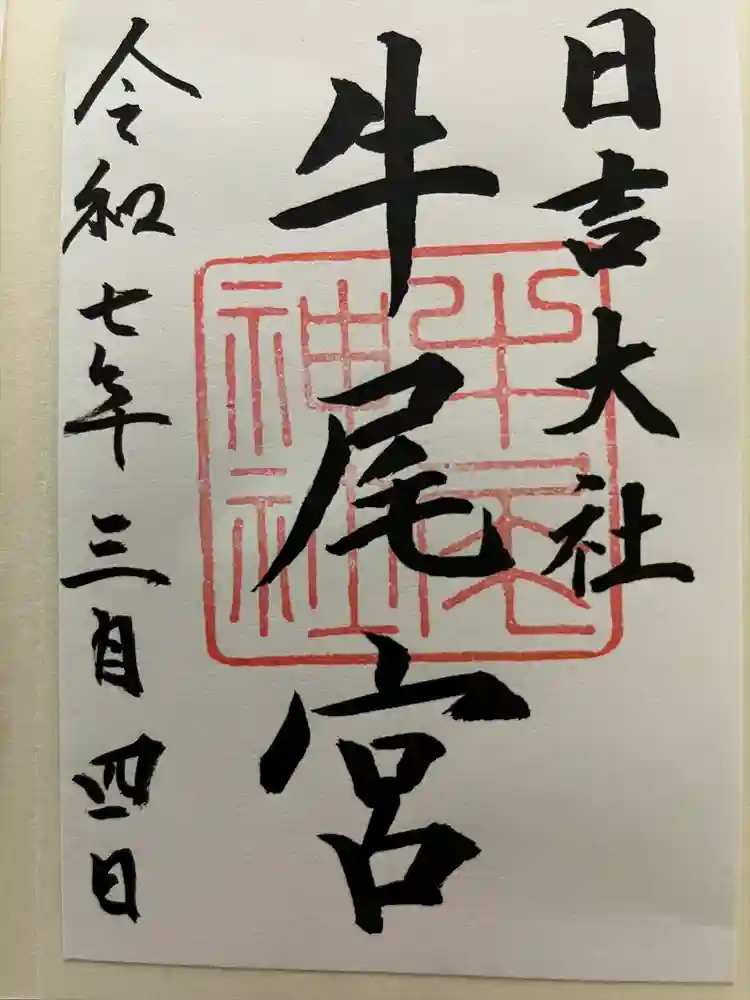 日吉大社
牛尾宮
令和七年三月四日
牛尾神社